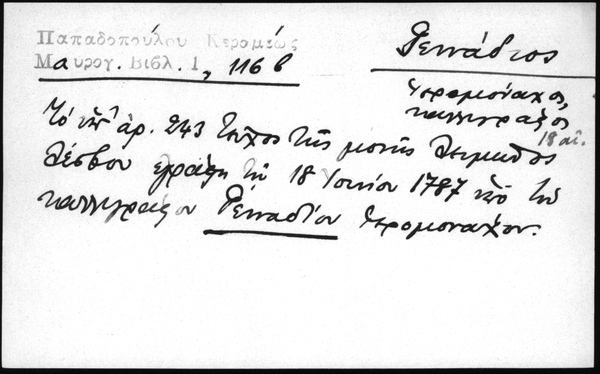 Παπαδοπούλου Κεραμέως
Μαυρογ. Βιβλ. 1, 116 β
Γεννάδιος
ἱερομόναχος,
καλλιγράφος
18 αἰ.
Τὸ ὑπ' ἀρ. 243 τεῦχος τῆς μονῆς Λειμῶνος
Λέσβου ἐγράφη τῇ 18 Ἰουνίου 1787 ὑπὸ τοῦ
καλλιγράφου Γενναδίου ἱερομονάχου.